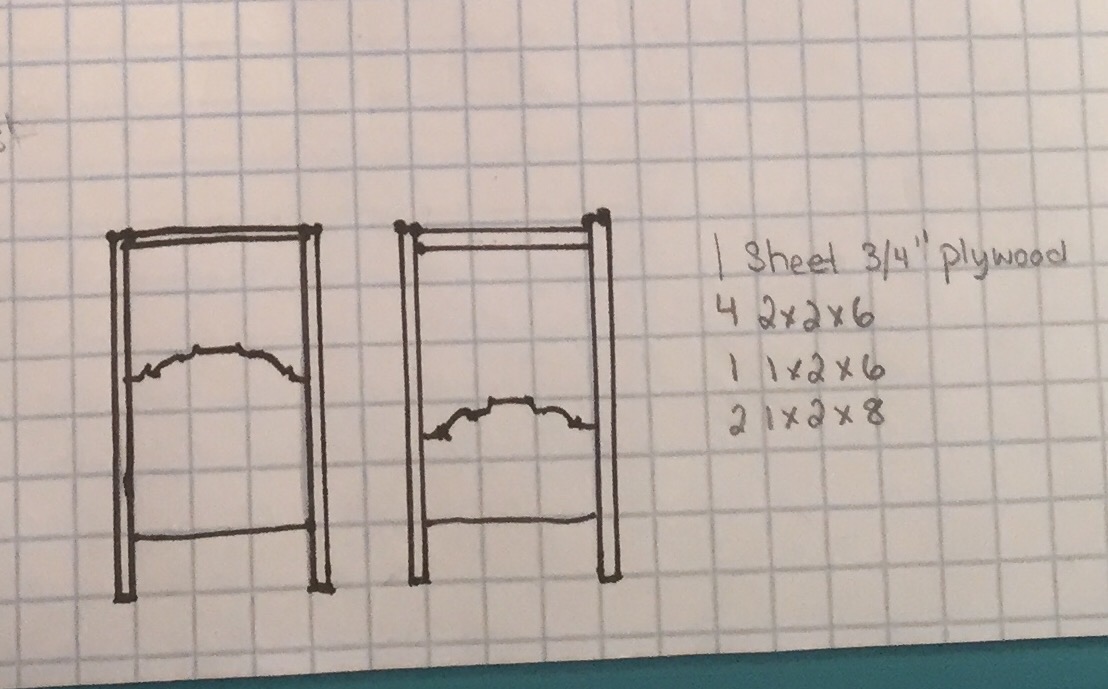 1 Sheet 3/4" plywood
4 2x2x6
1 1x2x6
2 1x2x8